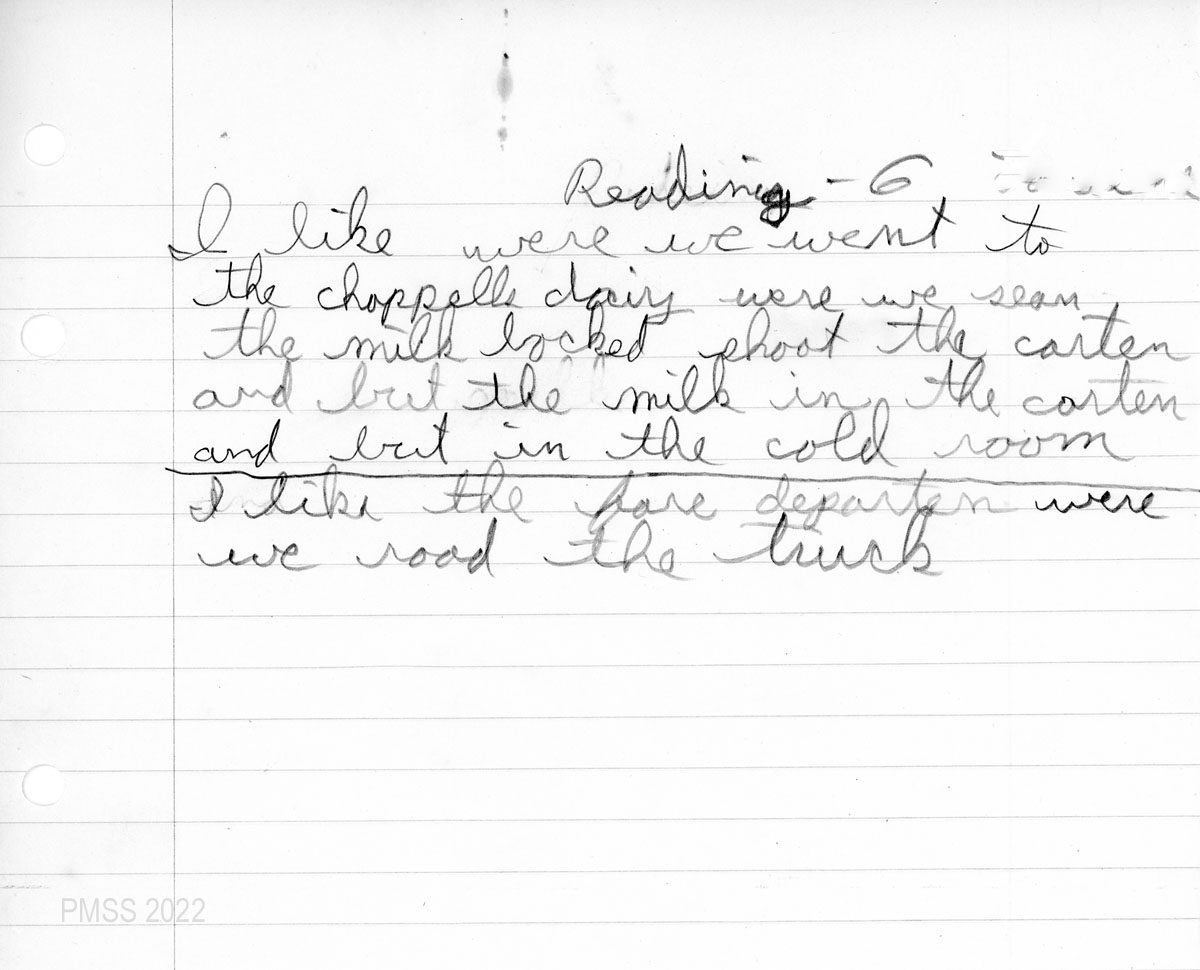 Reading - 6
I like were we went to
the chappells dairy were we sean
the milk locked shoot the carten
and but the milk in the carten
and but in the cold room
I like the fare departen were
we road the truck
PMSS 2022